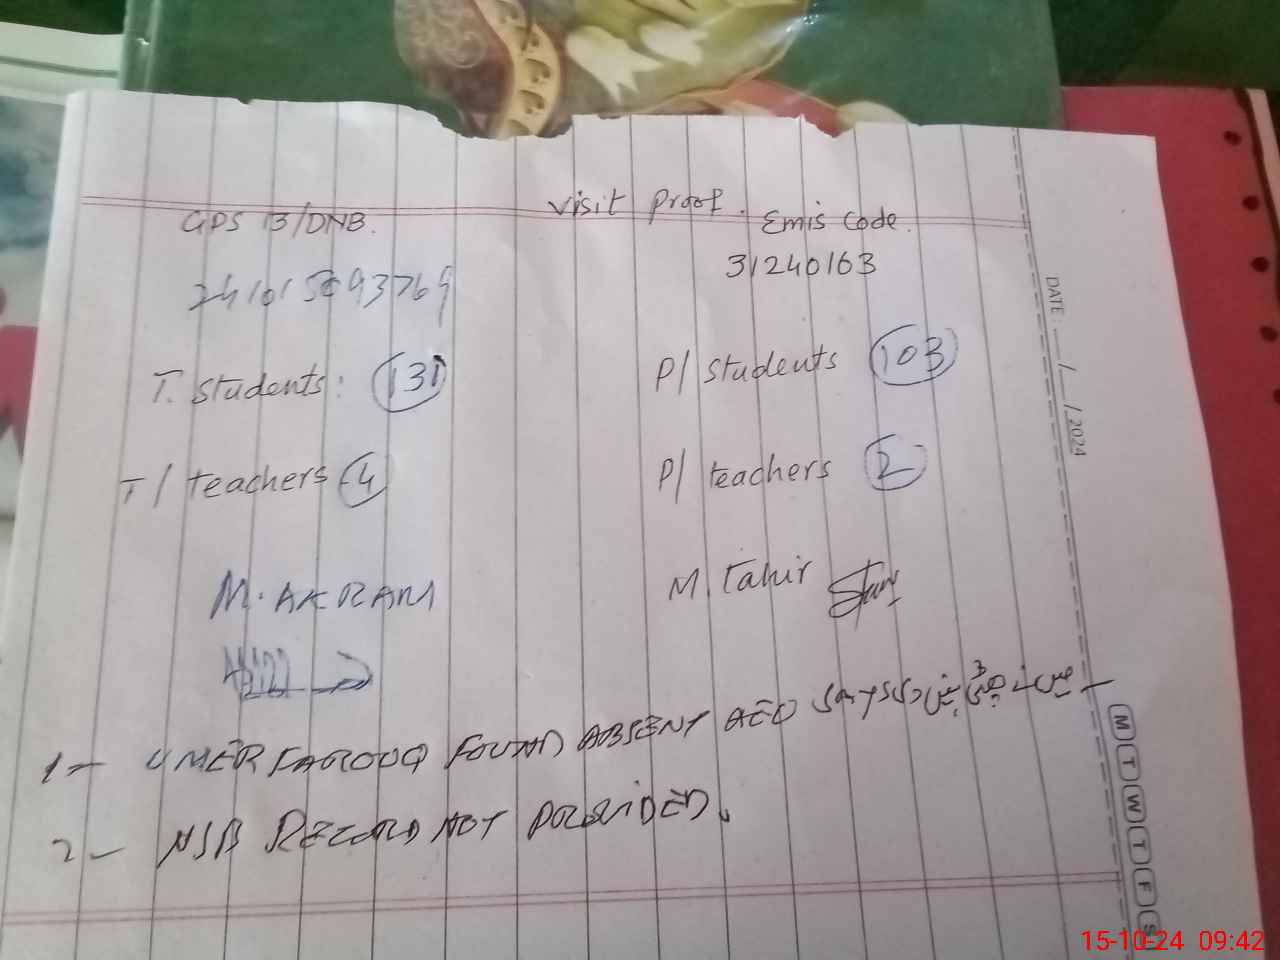 Visit Proof.
GPS 13/DNB.
Emis Code.
31240163
T. Students: 131
P/ Students 103
T/ teachers 4
P/ teachers 2
M. AKRAM
M. Tahir
1- UMER FAROOQ FOUND ABSENT AEO says
2- NSB RECORD NOT PROVIDED.
DATE: __/__/2024
M T W T F S
15-10-24 09:42